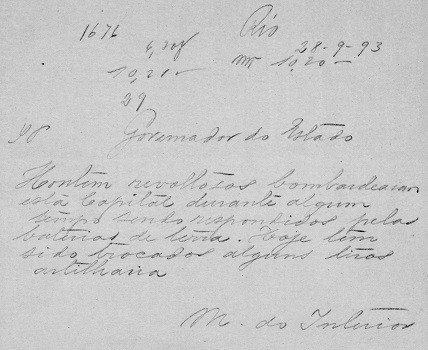 1676 Rio
28-9-93
10,20
29
Governador do Estado
Hontem revoltosos bombardearam
esta Capital durante algum
tempo sendo respondidos pelas
baterias de terra. Hoje tem
sido trocados alguns tiros
artilharia
M. do Interior